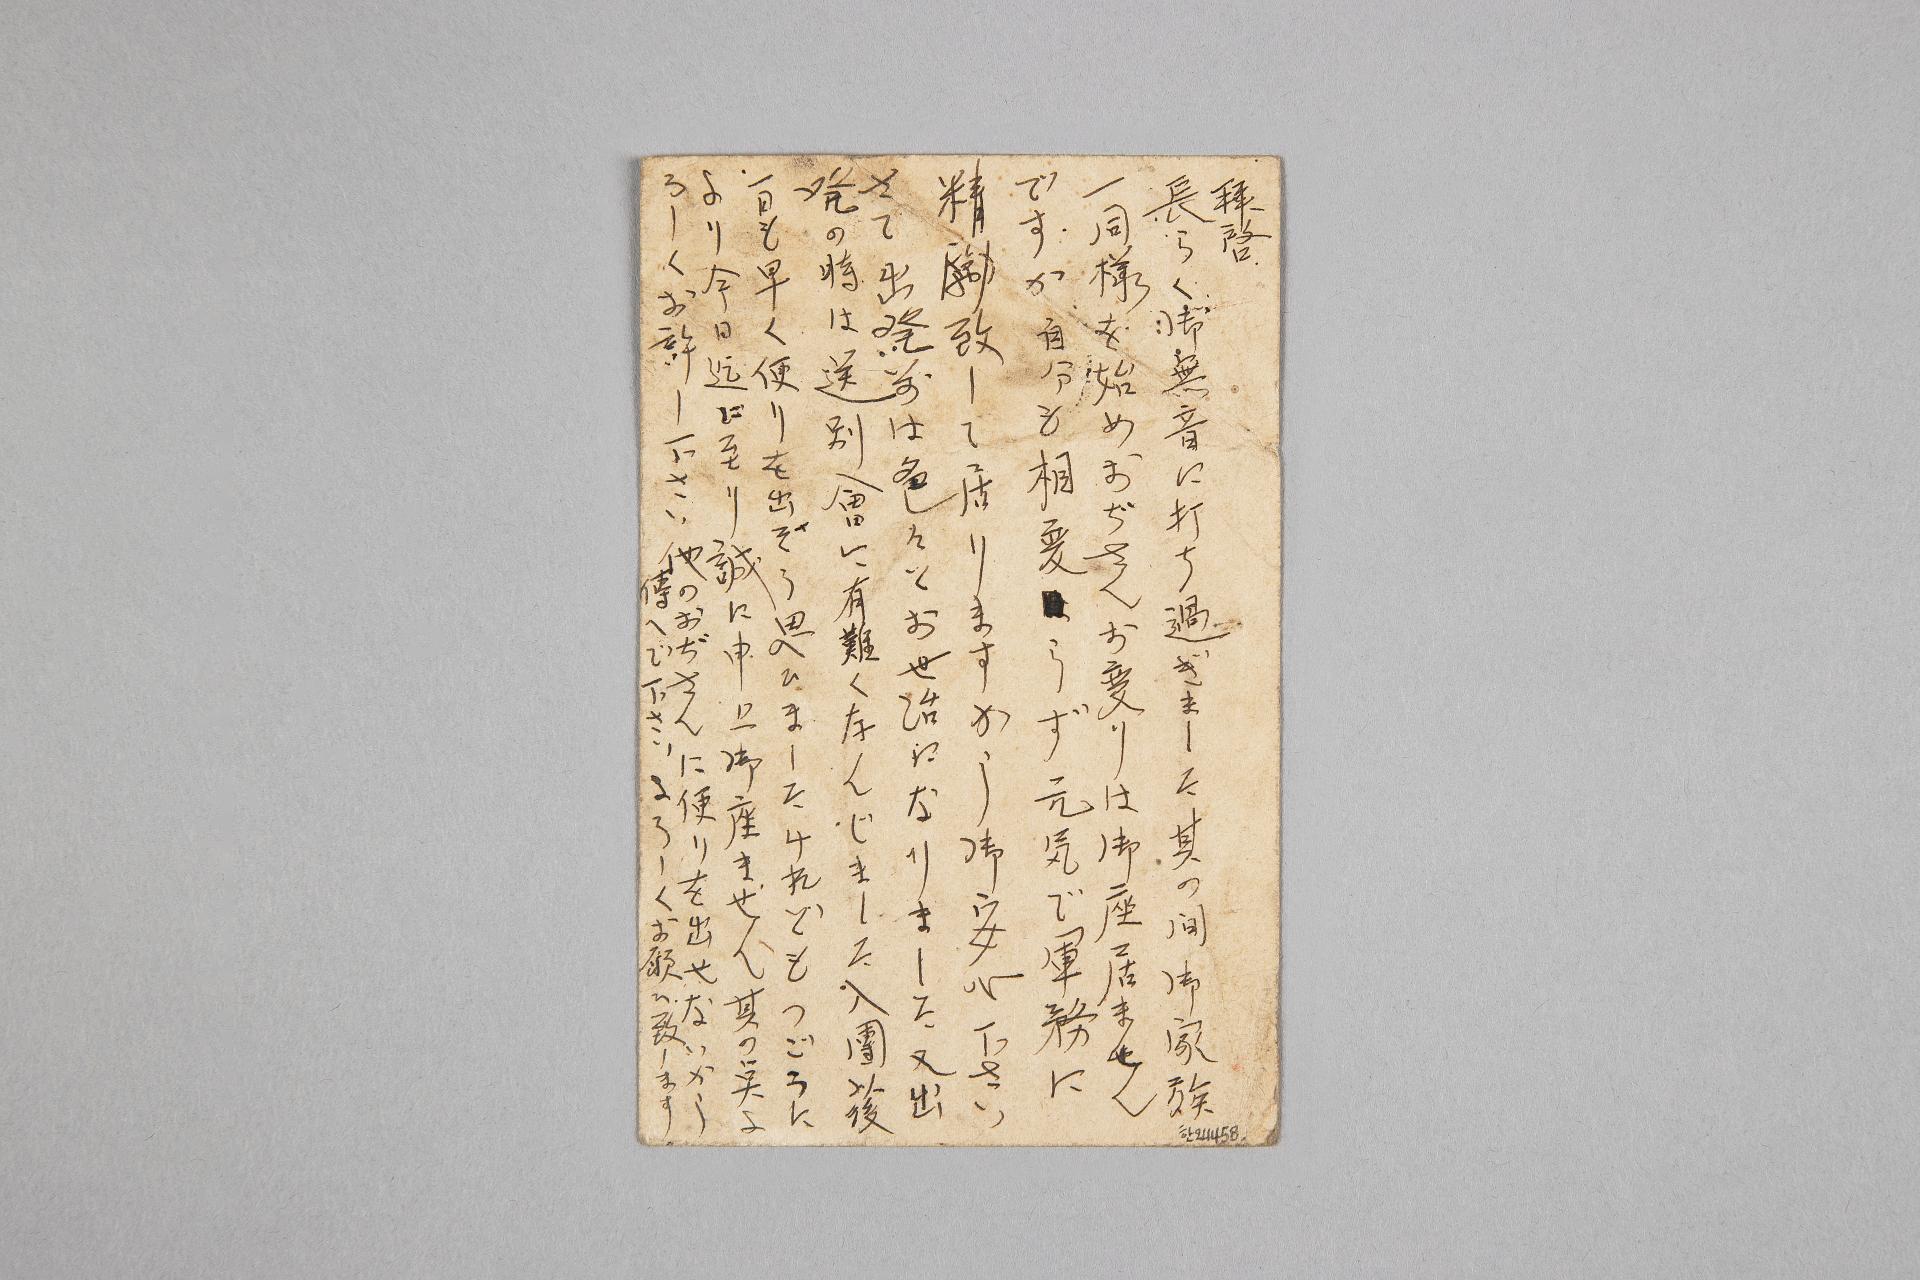 拝啓
長らく御無音に打ち過ぎました其の間御家族
一同様を始めおぢさんお変りは御座居ません
ですか自分も相変らず元気で軍務に
精励致して居りますから御安心下さい
さて出発前は色々とお世話になりました又出
発の時は送別會に有難くなんじました入團後
一日も早く便りを出そう思ひましたけれどもつごうに
より今日迄に至り誠に申上御座ません其の臭よ
ろしくお許し下さい他のおぢさんに便りを出せないから
傳へで下さいよろしくお願ひ致します
한24458